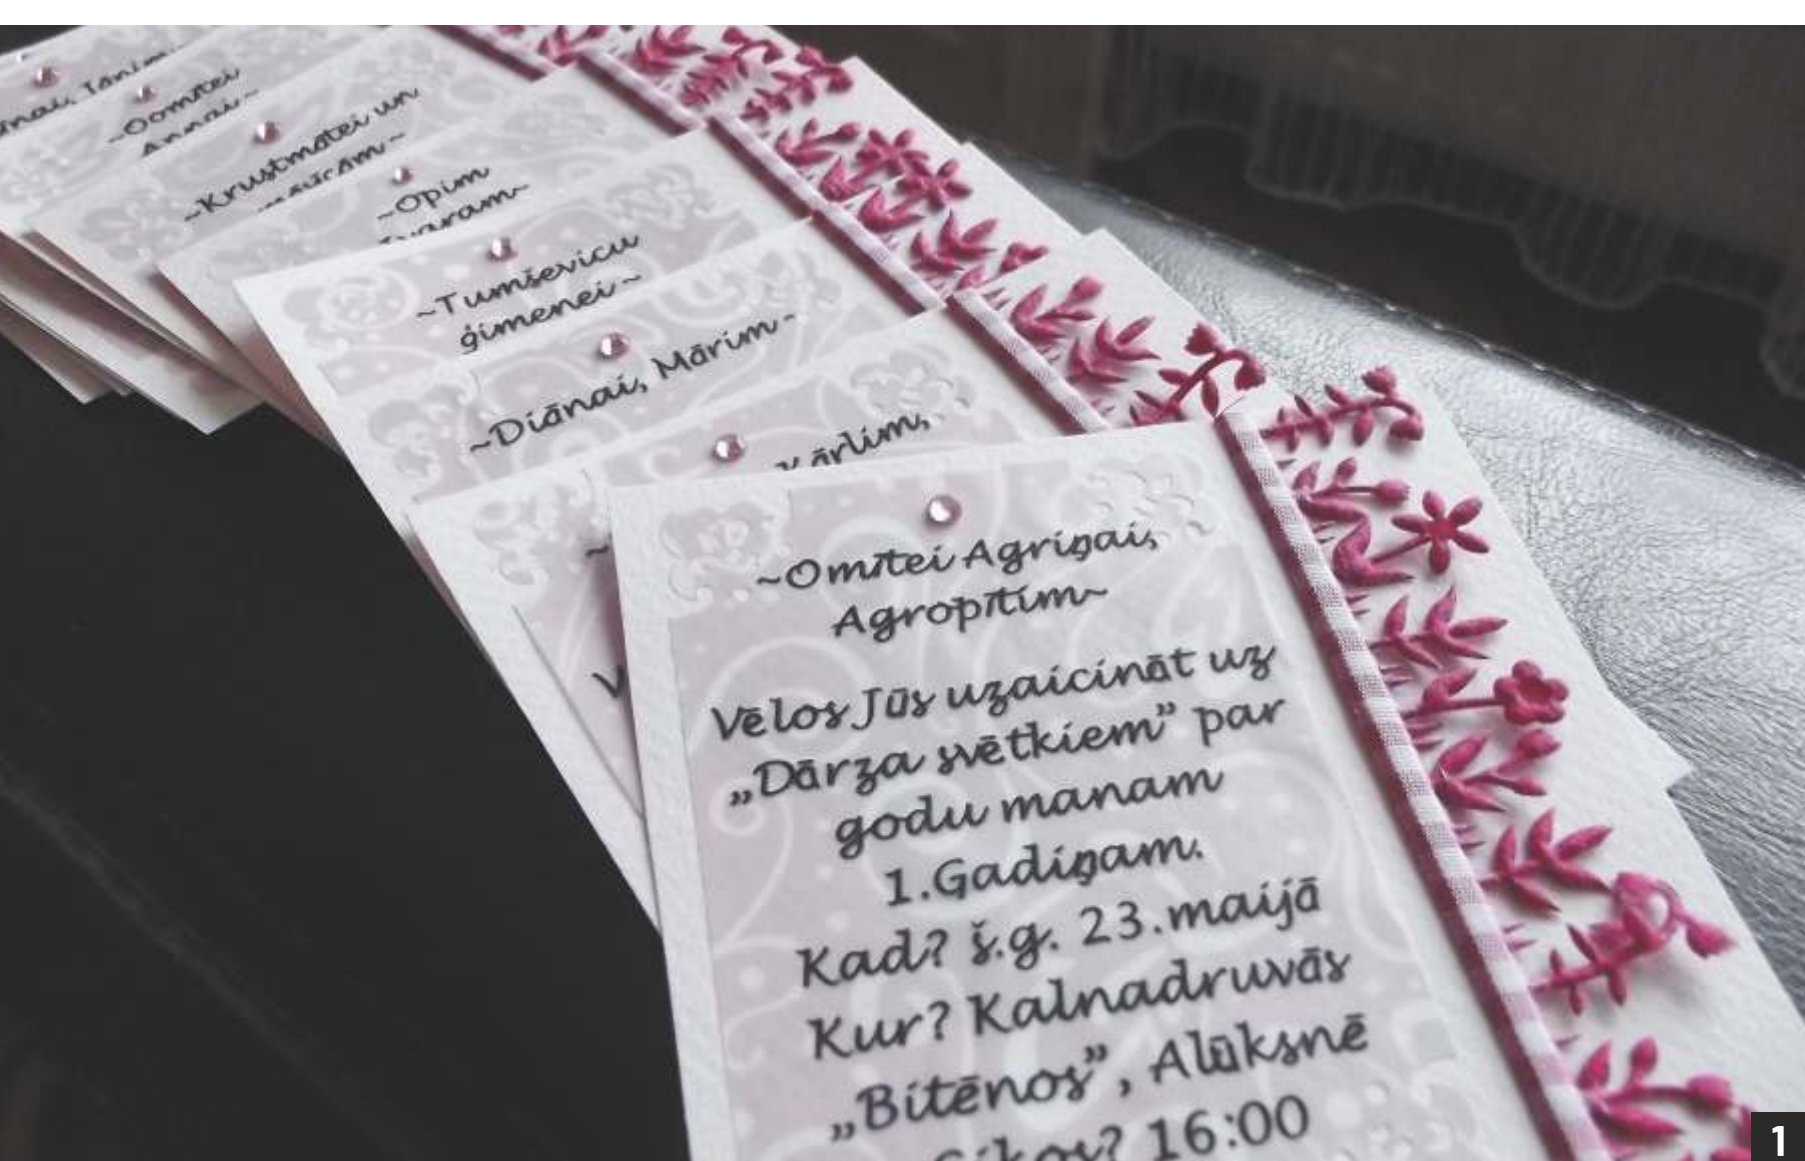 ~Oomītei
Annai~
~Krustmātei un
~Opim
~Tumševicu
ģimenei~
~Diānai, Mārim~
Kārlim,
~Omītei Agriņai,
Agropītim~
Vēlos Jūs uzaicināt uz
„Dārza svētkiem” par
godu manam
1.Gadiņam.
Kad? š.g. 23.maijā
Kur? Kalnadruvās
„Bitēnos”, Alūksnē
Cikos? 16:00
1